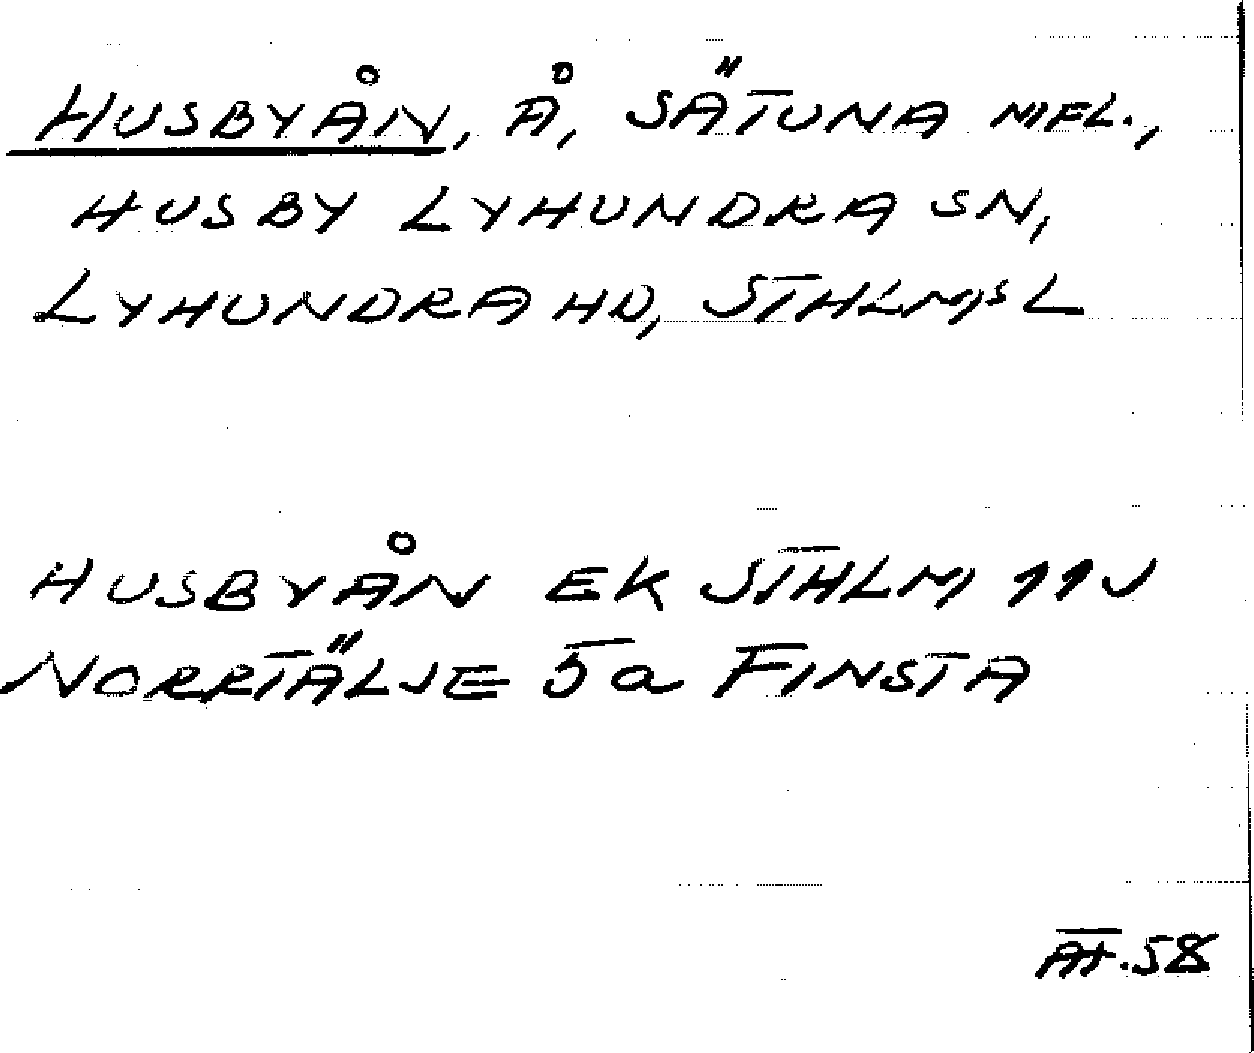 HUSBYÅN, Å, SÄTUNA MFL.,
HUSBY LYHUNDRA SN,
LYHUNDRA HD, STHLMS L
HUSBYÅN EK STHLM 11J
NORRTÄLJE 5a FINSTA
AT.58